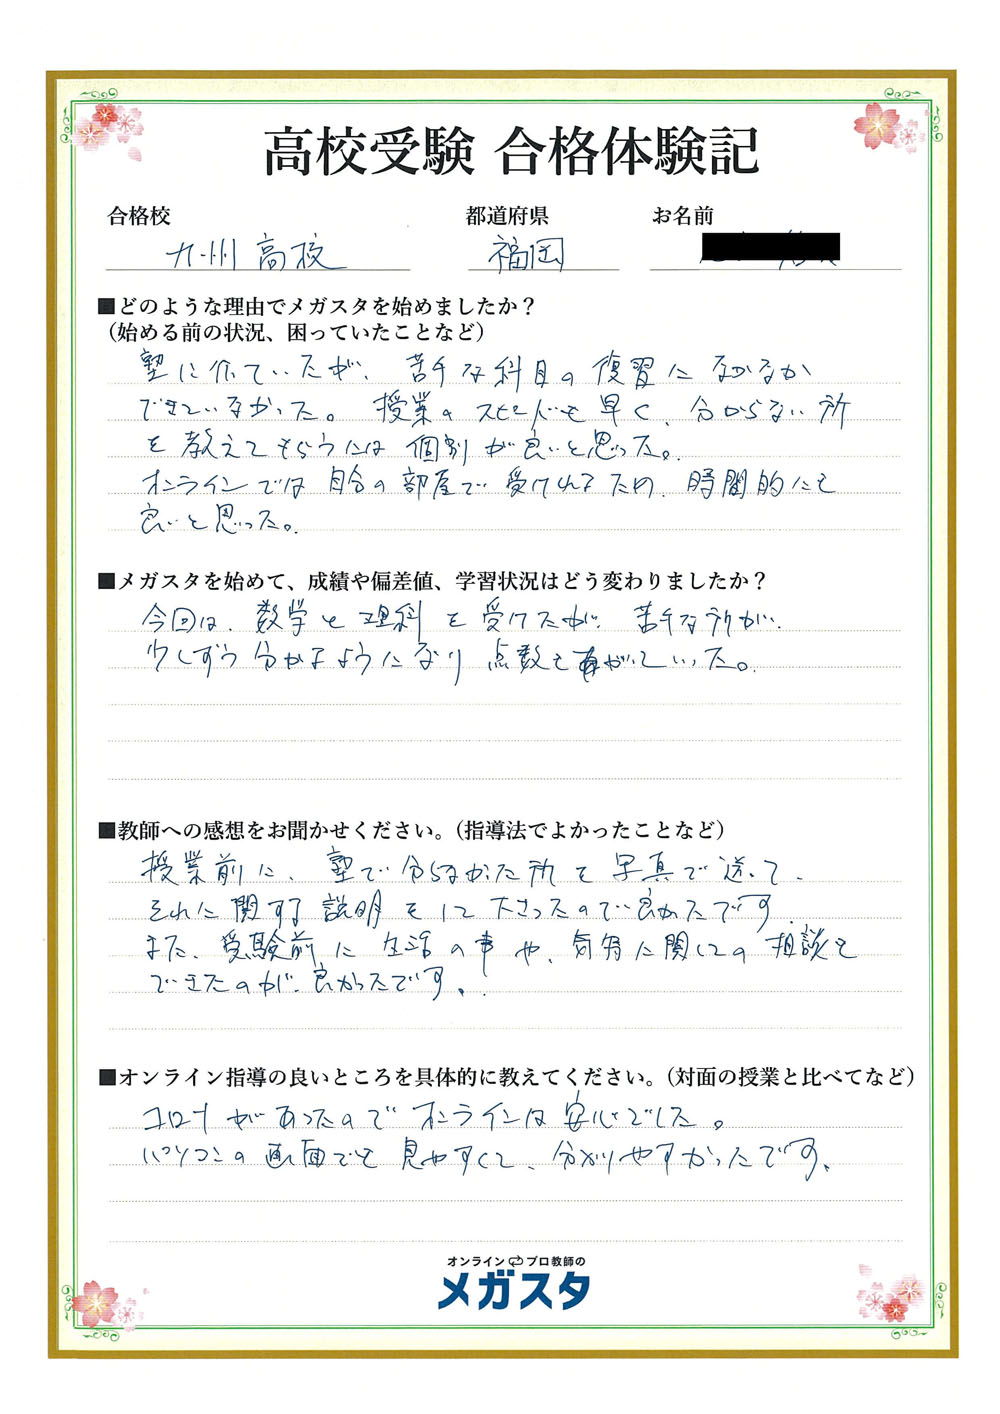 高校受験 合格体験記
合格校 都道府県 お名前
九州高校 福岡
■どのような理由でメガスタを始めましたか？
（始める前の状況、困っていたことなど）
塾に行っていたが、苦手な科目の復習になかなか
できていなかった。授業のスピードも早く、分からない所
を教えてもらうには個別が良いと思った。
オンラインでは自分の部屋で受けれるため、時間的にも
良いと思った。
■メガスタを始めて、成績や偏差値、学習状況はどう変わりましたか？
今回は、数学と理科を受けたが、苦手な所が、
少しずつ分かるようになり点数も上がっていった。
■教師への感想をお聞かせください。（指導法でよかったことなど）
授業前に、塾で分らなかった所を写真で送って、
それに関する説明をして下さったので良かったです。
また、受験前に生活の事や、気持に関しての相談も
できたのが、良かったです。
■オンライン指導の良いところを具体的に教えてください。（対面の授業と比べてなど）
コロナがあったのでオンラインは安心でした。
パソコンの画面でも見やすくて、分かりやすかったです。
オンライン プロ教師の
メガスタ